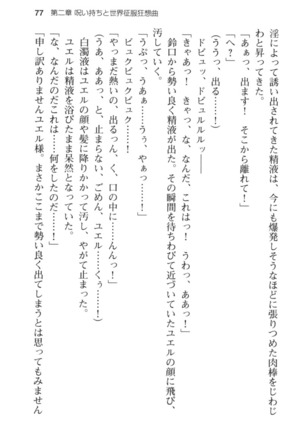 77　第二章 呪い持ちと世界征服狂想曲
淫によって誘い出されてきた精液は、今にも爆発しそうなほどに張りつめた肉棒をじわじ
わと昇ってきた。
（ううっ、出る……！）
「あぁっ、出ます！　そこから離れて！」
「へ？」
ドピュッ、ドピュルルルッ――
「きゃあっ！　きゃっ、な、なんだ、これはっ！　うわっ、ああっ！」
鈴口から勢い良く精液が出た。その瞬間を待ちわびて近づいていたユエルの顔に飛び、
汚していく。
「ぶぅっ、うあぁ……うぅっ、やぁっ……！」
ビュクビュクビュクッ！
「やっまだ熱いの、出るっん、く、口の中に……んんっ！」
（うあ、ああっ、と、止まらない、ごめん、ユエル……くぅ……！）
白濁液はユエルの顔や髪に降りかかって汚し、やがて止まった。
ユエルは精液を浴びたまま呆然となっていた。
「な、なんだのだこれは……何をしたのだ……」
「申し訳ありませんユエル様。まさかここまで勢い良く出てしまうとは思ってもみません